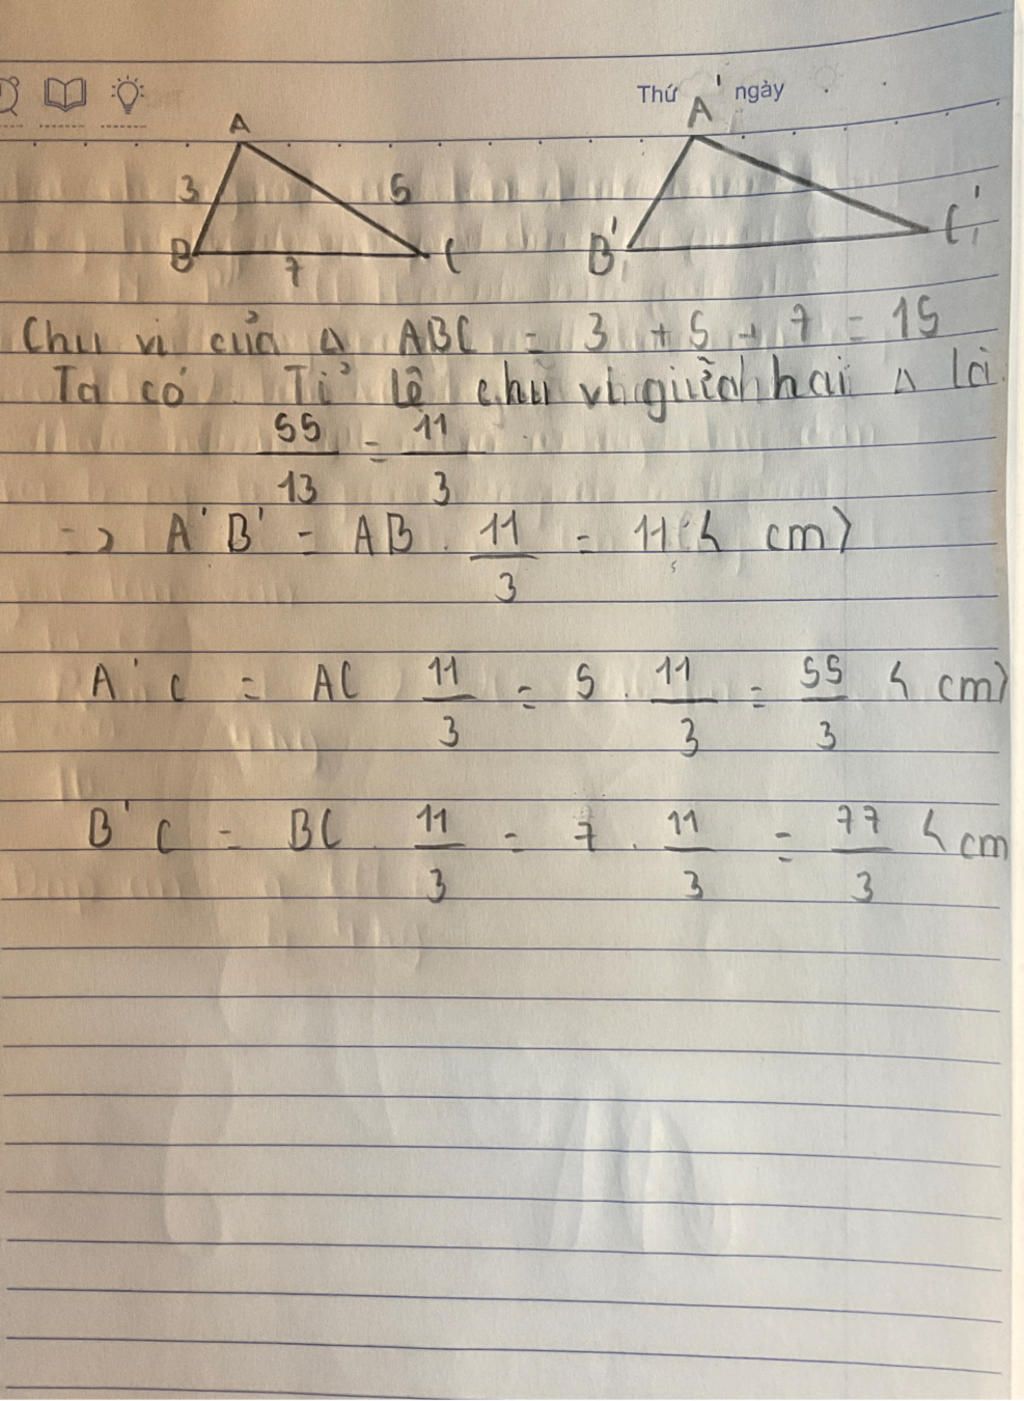 Thứ ngày
A
A'
3
5
B
7
C
B'
C'
Chu vi của Δ ABC = 3 + 5 + 7 = 15
Ta có Tỉ lệ chu vi giữa hai Δ là
55/13 = 11/3
=> A'B' = AB . 11/3 = 11 (cm)
A'C = AC 11/3 = 5 . 11/3 = 55/3 (cm)
B'C = BC . 11/3 = 7 . 11/3 = 77/3 (cm